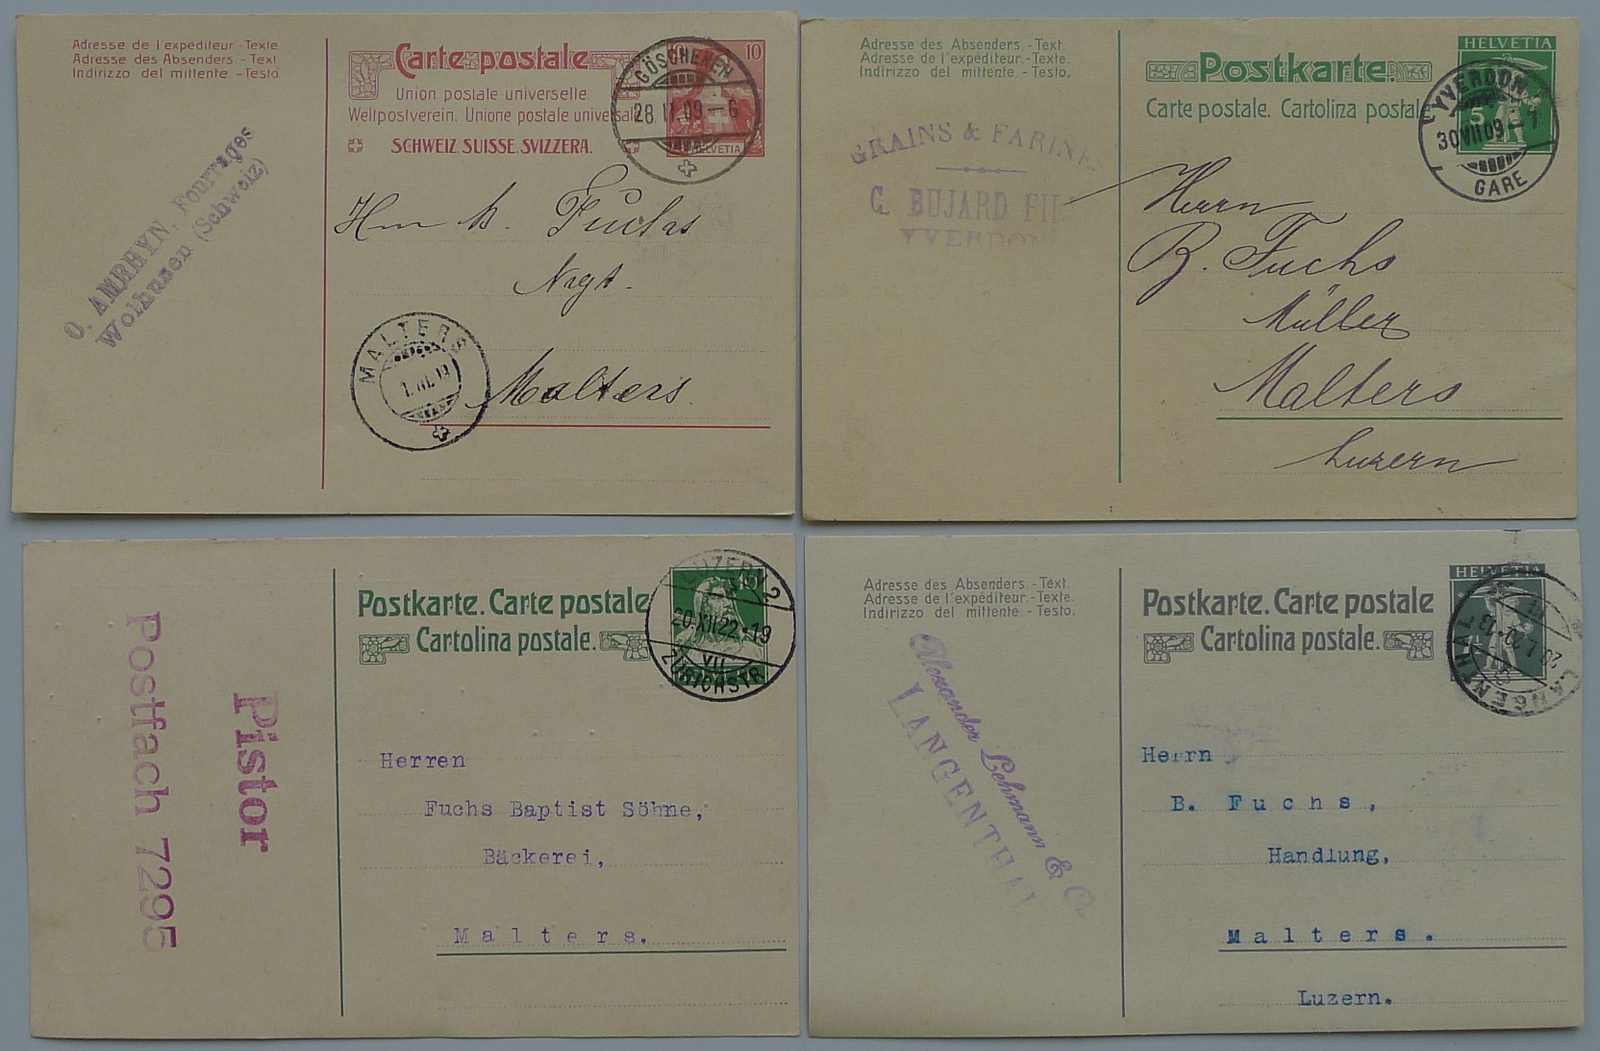 Adresse de l'expéditeur - Texte.
Adresse des Absenders. - Text.
Indirizzo del mittente - Testo.
Carte postale
Union postale universelle.
Weltpostverein. Unione postale universale
SCHWEIZ. SUISSE. SVIZZERA.
10
HELVETIA
GÖSCHENEN
O. AMRHYN, Fourrages
Wolhusen (Schweiz)
Fuchs
Malters.
MALTERS
Adresse des Absenders. - Text.
Adresse de l'expéditeur. - Texte.
Indirizzo del mittente. - Testo.
Postkarte.
Carte postale. Cartolina postale
HELVETIA
5
YVERDON
30 VII 09 - 7
GARE
GRAINS & FARINE
C. BUJARD FIL
YVERDON
Herrn
B. Fuchs
Müller
Malters
Luzern
Postkarte. Carte postale
Cartolina postale.
10
LUZERN 2
20.XII.22.-19
VII
ZÜRICHSTR.
Pistor
Postfach 7295
Herren
Fuchs Baptist Söhne,
Bäckerei,
Malters.
Adresse des Absenders. - Text.
Adresse de l'expéditeur. - Texte.
Indirizzo del mittente. - Testo.
Postkarte. Carte postale
Cartolina postale.
HELVETIA
LANGENTHAL
Alexander Lehmann & Co
LANGENTHAL
Herrn
B. Fuchs,
Handlung,
Malters.
Luzern.